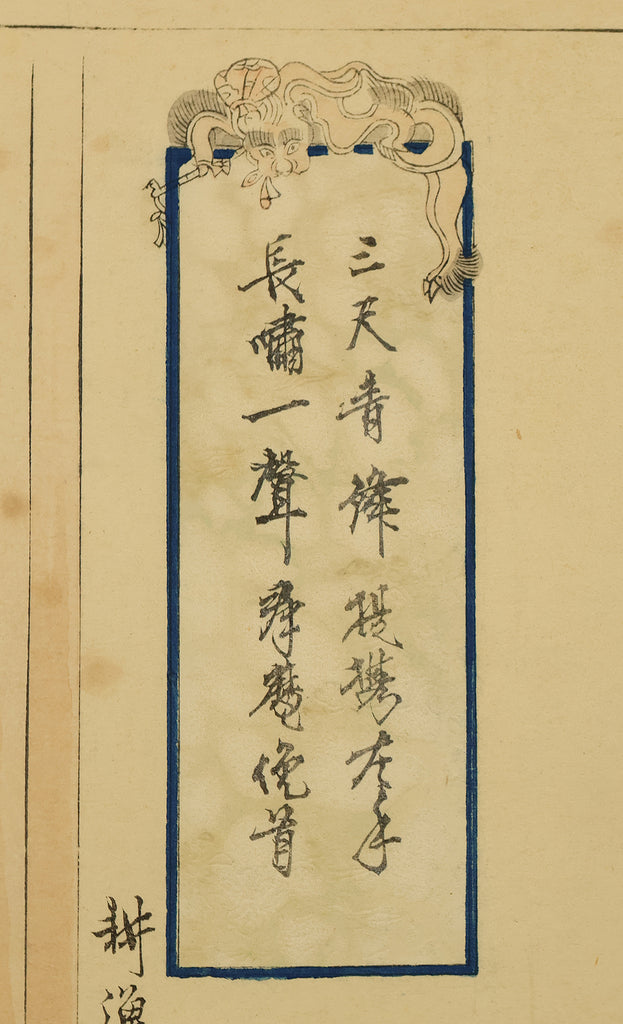 三尺青鋒提携在手
長嘯一聲群魔俛首
耕漁